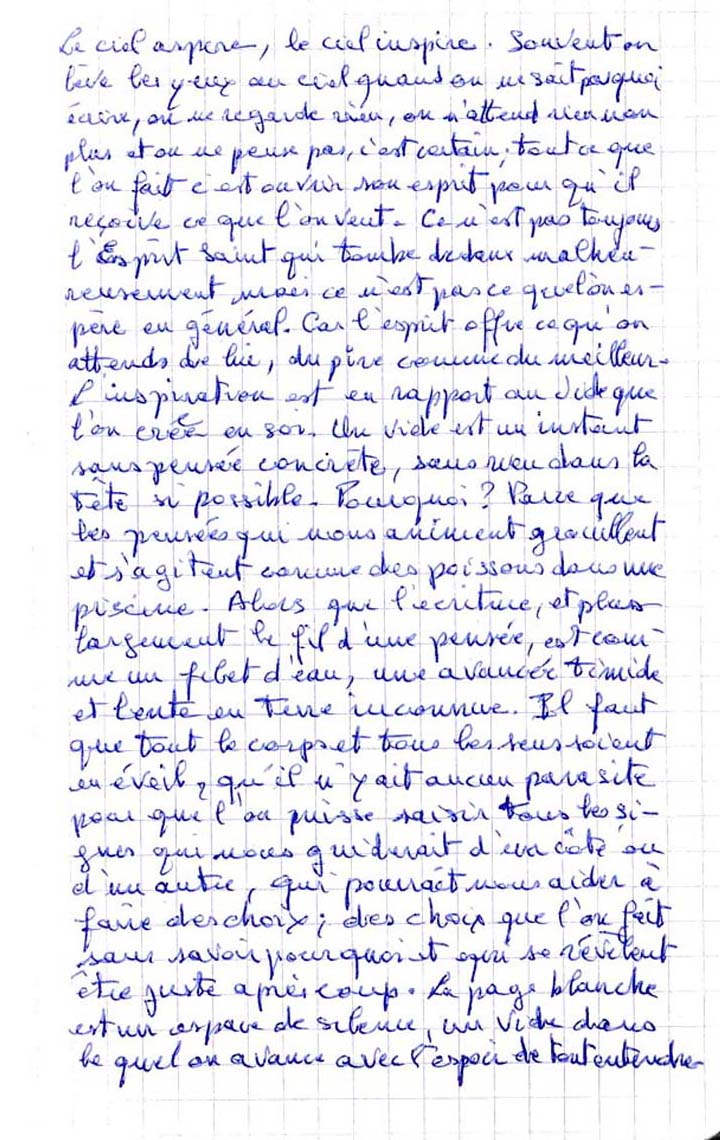 Le ciel aspire, le ciel inspire. Souvent on
lève les yeux au ciel quand on ne sait pas quoi
écrire, on ne regarde rien, on n'attend rien non
plus et on ne pense pas, c'est certain; tout ce que
l'on fait c'est ouvrir son esprit pour qu'il
reçoive ce que l'on veut. Ce n'est pas toujours
l'Esprit Saint qui tombe dedans malheu-
reusement mais ce n'est pas ce que l'on es-
père en général. Car l'esprit offre ce qu'on
attends de lui, du pire comme du meilleur.
L'inspiration est en rapport au vide que
l'on crée en soi. Un vide est un instant
sans pensée concrète, sans rien dans la
tête si possible. Pourquoi? Parce que
les pensées qui nous animent grouillent
et s'agitent comme des poissons dans une
piscine. Alors que l'écriture, et plus
largement le fil d'une pensée, est com-
me un filet d'eau, une avancée timide
et lente en terre inconnue. Il faut
que tout le corps et tous les sens soient
en éveil, qu'il n'y ait aucun parasite
pour que l'on puisse saisir tous les si-
gnes qui nous guiderait d'un côté ou
d'un autre, qui pourrait nous aider à
faire des choix; des choix que l'on fait
sans savoir pourquoi et qui se révèlent
être juste après coup. La page blanche
est un espace de silence, un vide dans
le quel on avance avec l'espoir de tout entendre.